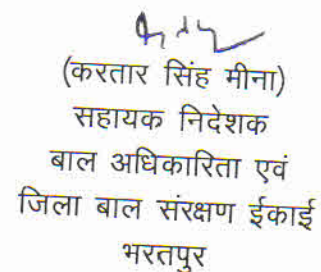 (करतार सिंह मीना)
सहायक निदेशक
बाल अधिकारिता एवं
जिला बाल संरक्षण ईकाई
भरतपुर